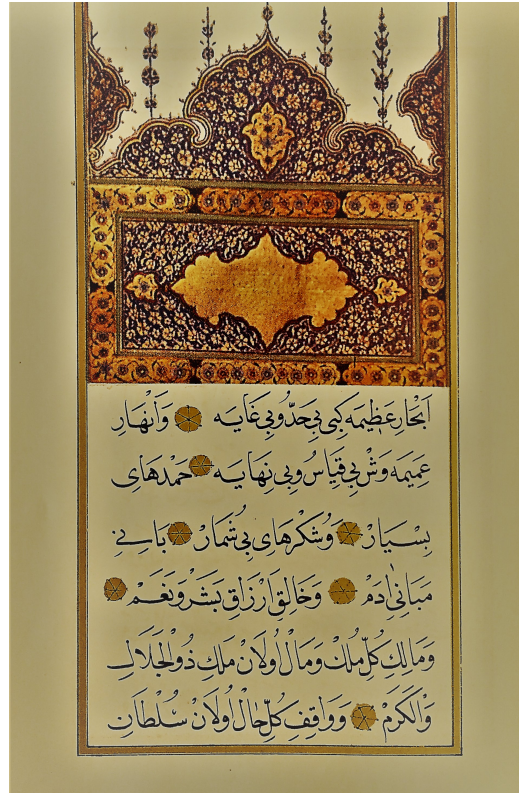 اَبْحَارِ عَظِيمَه كِبِى بِى حَدُّ وبِى غَايَه وَاَنْهَارِ
عَمِيمَه وَشْ بِى قِيَاسُ وبِى نِهَايَه حَمْدهَاىِ
بِسْيَارْ وَشُكْرهَاىِ بِى شُمَارْ بَانِئِ
مَبَانِئِ اٰدَمْ وَخَالِقِ اَرْزَاقِ بَشَرْ وَنَعَمْ
وَمَالِكِ كُلِّ مُلْكْ وَمَالْ اُولَانْ مَلِكِ ذُو الْجَلَالِ
وَالْكَرَمْ وَوَاقِفِ كُلِّ حَالْ اُولَانْ سُلْطَانِ